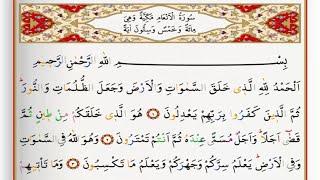 سُورَةُ الْاَنْعَامِ مَكِّيَّةٌ وَهِىَ
مِائَةٌ وَخَمْسٌ وَسِتُّونَ اٰيَةً
بِسْمِ اللّٰهِ الرَّحْمٰنِ الرَّحِيمِ
اَلْحَمْدُ لِلّٰهِ الَّذى خَلَقَ السَّمٰوَاتِ وَالْاَرْضَ وَجَعَلَ الظُّلُمَاتِ وَالنُّورَ
ثُمَّ الَّذينَ كَفَرُوا بِرَبِّهِمْ يَعْدِلُونَ ۝ هُوَ الَّذى خَلَقَكُمْ مِنْ طينٍ ثُمَّ
قَضٰى اَجَلًا وَاَجَلٌ مُسَمًّى عِنْدَهُ ثُمَّ اَنْتُمْ تَمْتَرُونَ ۝ وَهُوَ اللّٰهُ فِى السَّمٰوَاتِ
وَفِى الْاَرْضِ يَعْلَمُ سِرَّكُمْ وَجَهْرَكُمْ وَيَعْلَمُ مَا تَكْسِبُونَ ۝ وَمَا تَاْتيهِمْ